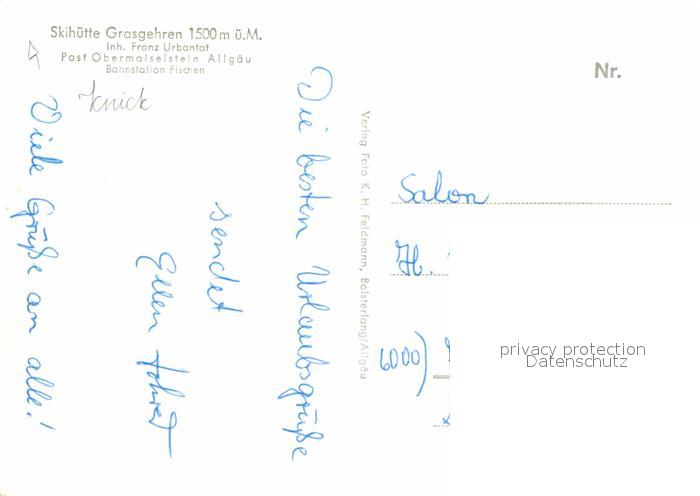 Skihütte Grasgehren 1500 m ü.M.
Inh. Franz Urbantat
Post Obermaiselstein Allgäu
Bahnstation Fischen
Knick
Nr.
Die besten Urlaubsgrüße
sendet
Ellen
Viele Grüße an alle!
Verlag Foto K. H. Feldmann, Bolsterlang/Allgäu
Salon
H.
(6000)
privacy protection
Datenschutz